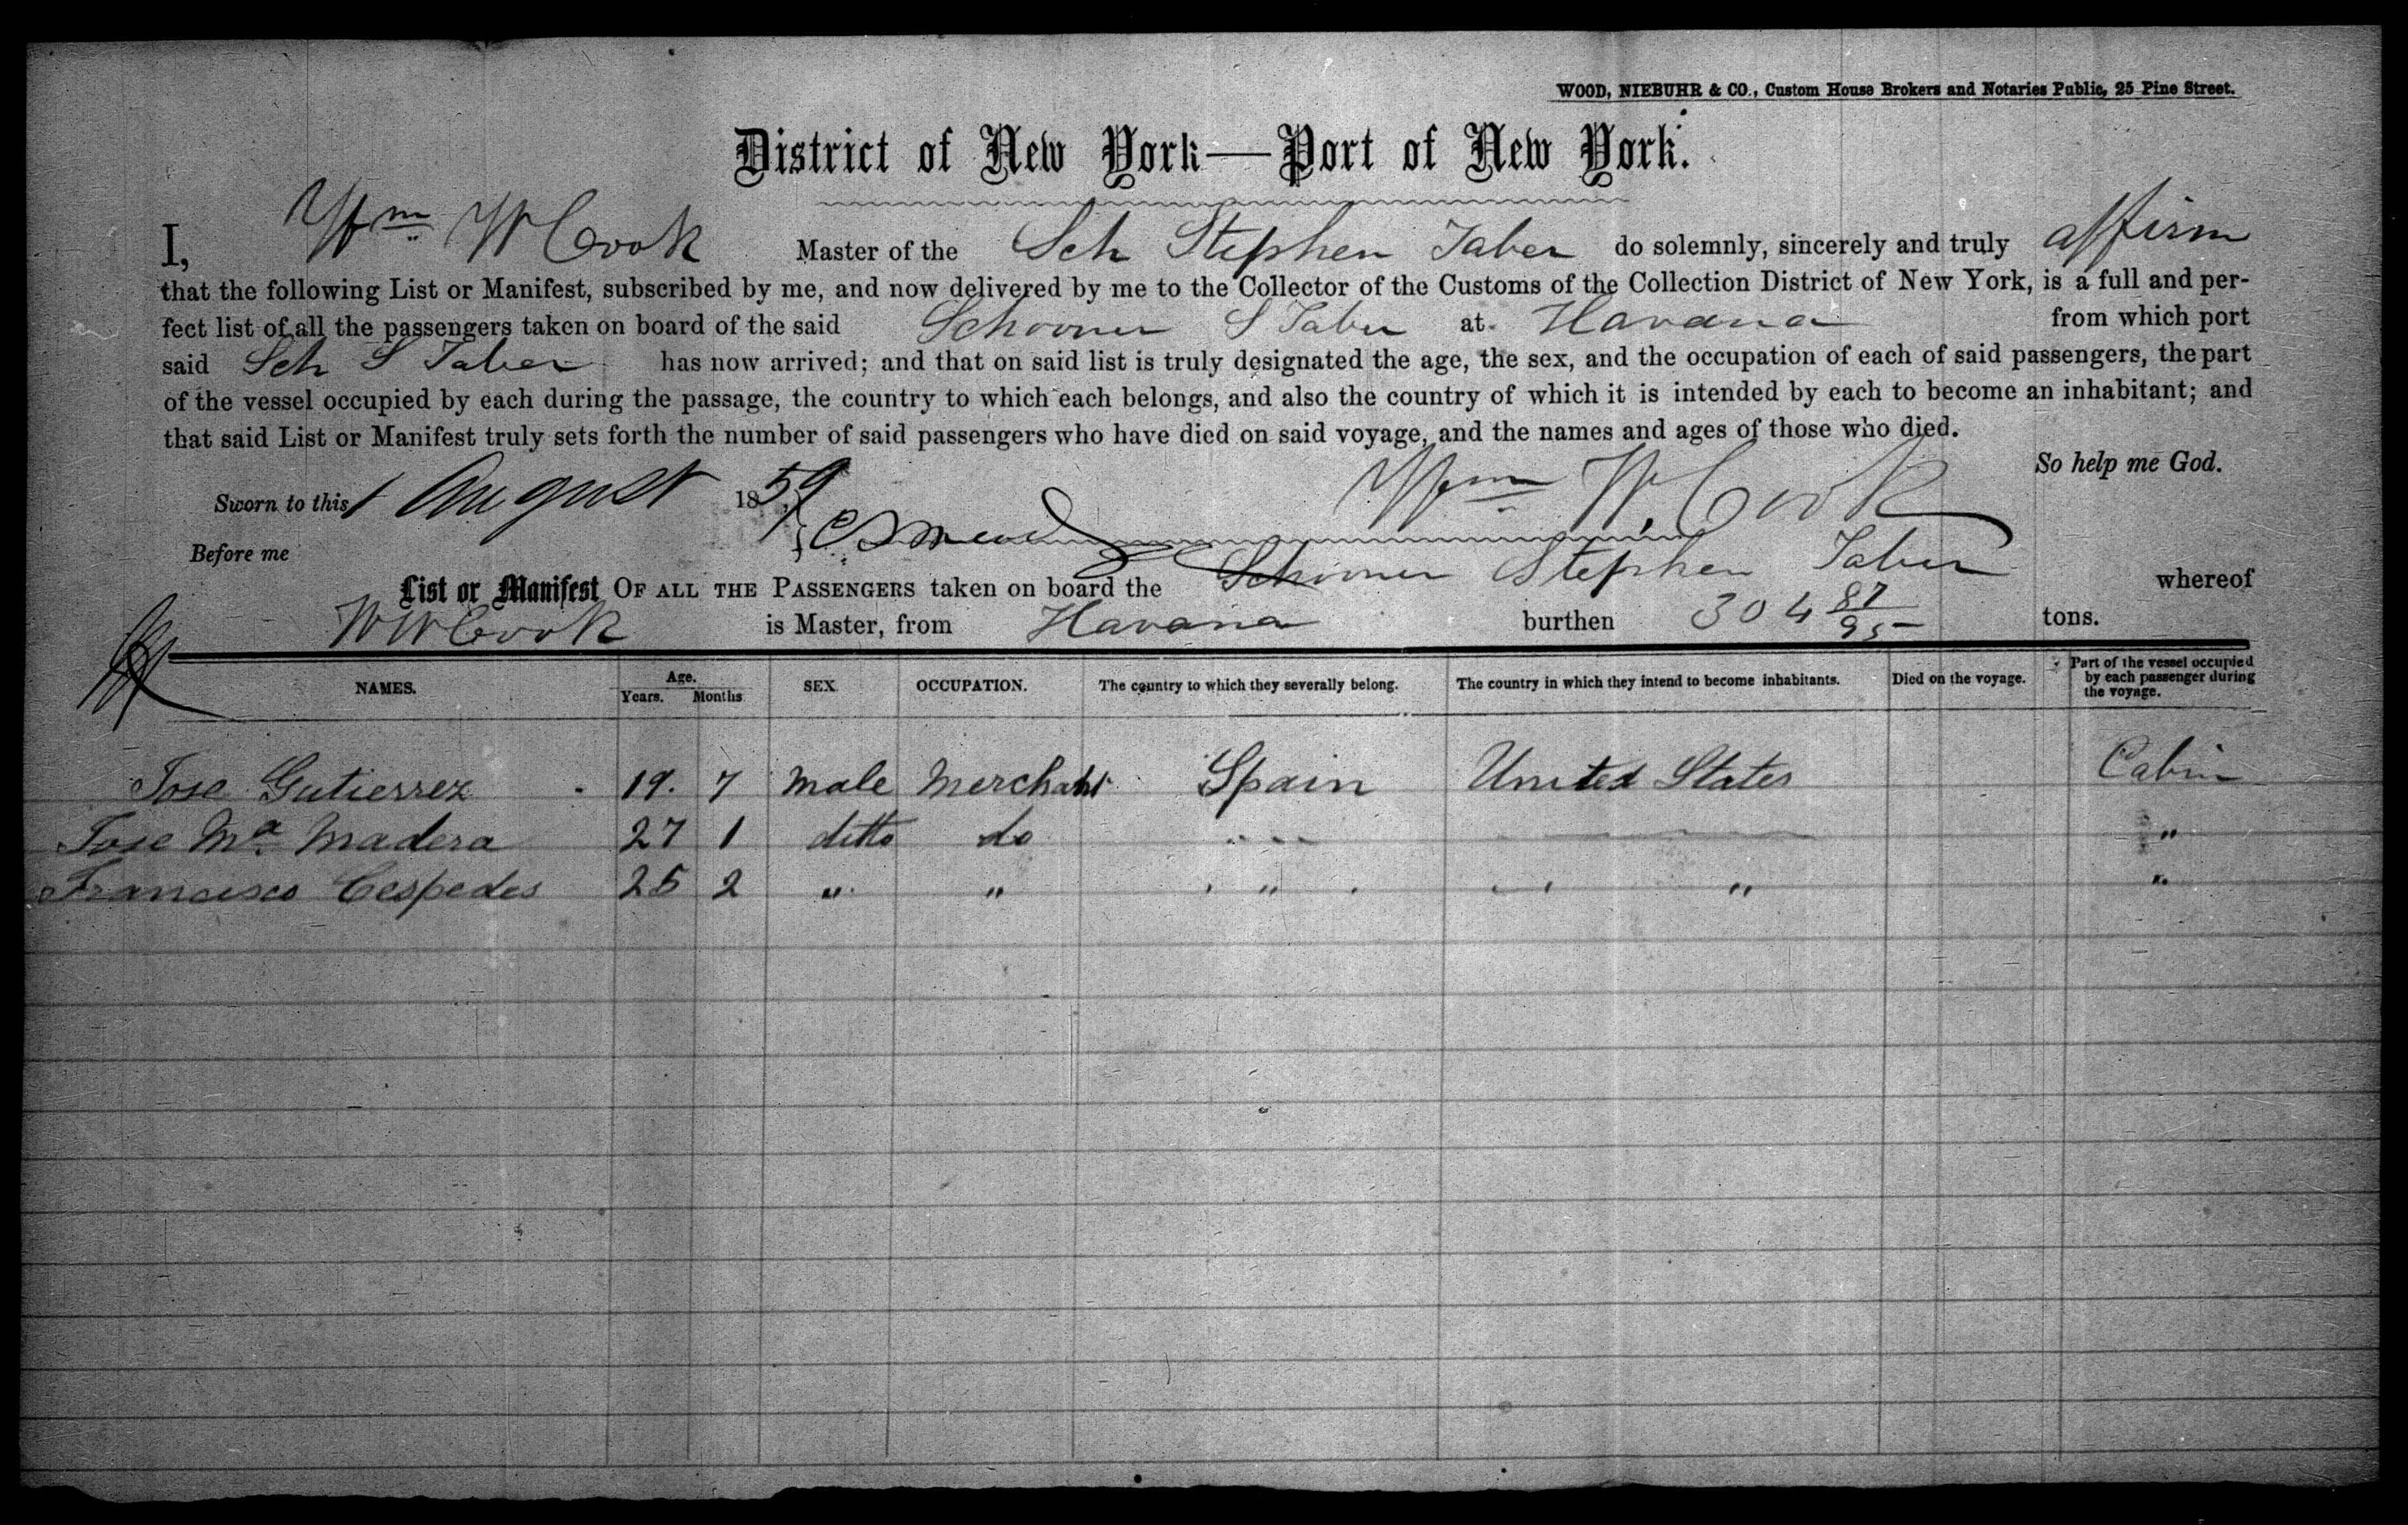 WOOD, NIEBUHR & CO., Custom House Brokers and Notaries Public, 25 Pine Street.
District of New York—Port of New York.
I, Wm W Cook Master of the Sch Stephen Taber do solemnly, sincerely and truly affirm
that the following List or Manifest, subscribed by me, and now delivered by me to the Collector of the Customs of the Collection District of New York, is a full and per-
fect list of all the passengers taken on board of the said Schooner S Taber at Havana from which port
said Sch S Taber has now arrived; and that on said list is truly designated the age, the sex, and the occupation of each of said passengers, the part
of the vessel occupied by each during the passage, the country to which each belongs, and also the country of which it is intended by each to become an inhabitant; and
that said List or Manifest truly sets forth the number of said passengers who have died on said voyage, and the names and ages of those who died.
So help me God.
Sworn to this 1 August 1859 Wm W. Cook
Before me
List or Manifest OF ALL THE PASSENGERS taken on board the Schooner Stephen Taber whereof
W W Cook is Master, from Havana burthen 304 87/95 tons.
NAMES. Age. Years. Months SEX. OCCUPATION. The country to which they severally belong. The country in which they intend to become inhabitants. Died on the voyage. Part of the vessel occupied by each passenger during the voyage.
Jose Gutierrez 19. 7 male Merchant Spain United States Cabin
Jose Ma Madera 27 1 ditto do "
Francisco Cespedes 25 2 " " " " "